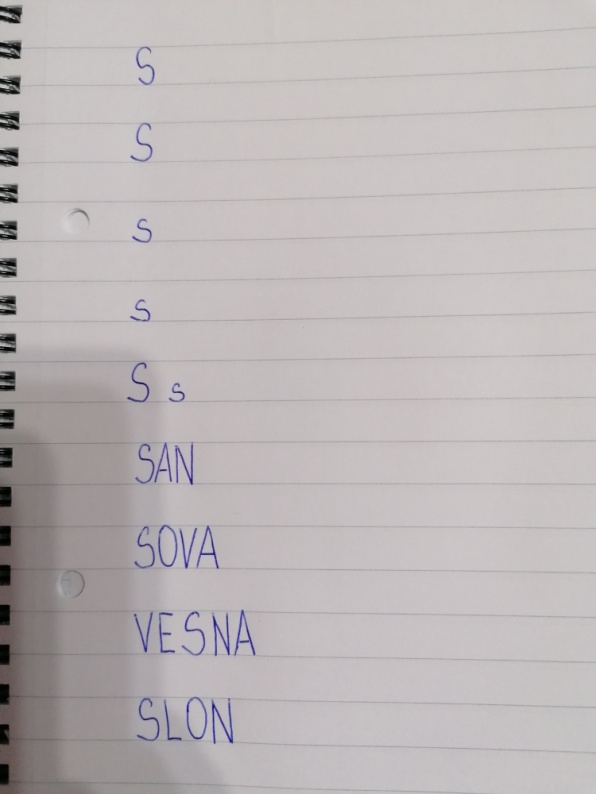 S
S
s
s
S s
SAN
SOVA
VESNA
SLON